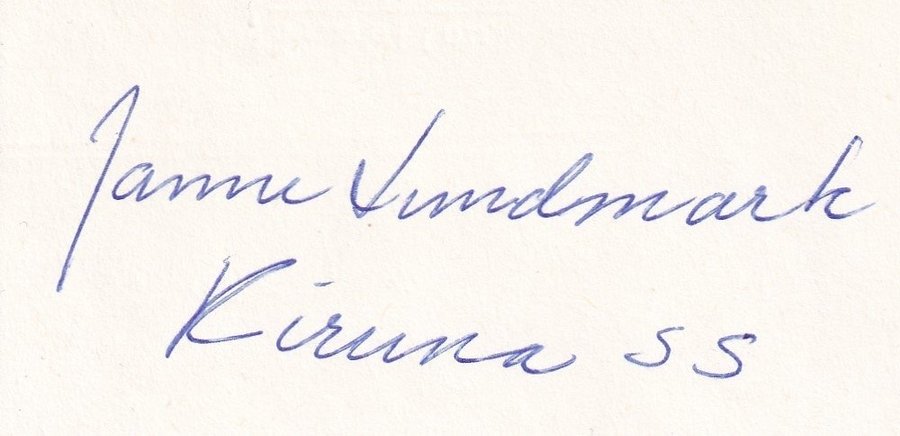 Janne Lundmark
Kiruna SS